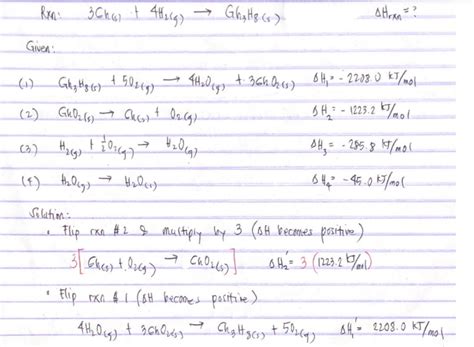 Rxn: 3Gh(s) + 4H₂(g) → Gh₃H₈(s) ΔHrxn = ?
Given:
(1) Gh₃H₈(s) + 5O₂(g) → 4H₂O(g) + 3GhO₂(s) ΔH₁ = -2208.0 KJ/mol
(2) GhO₂(s) → Gh(s) + O₂(g) ΔH₂ = -1223.2 KJ/mol
(3) H₂(g) + ½O₂(g) → H₂O(g) ΔH₃ = -285.8 KJ/mol
(4) H₂O(g) → H₂O(s) ΔH₄ = -45.0 KJ/mol
Solution:
• Flip rxn #2 & multiply by 3 (ΔH becomes positive)
3[Gh(s) + O₂(g) → GhO₂(s)] ΔH₂' = 3(1223.2 KJ/mol)
• Flip rxn #1 (ΔH becomes positive)
4H₂O(g) + 3GhO₂(s) → Gh₃H₈(s) + 5O₂(g) ΔH₁' = 2208.0 KJ/mol